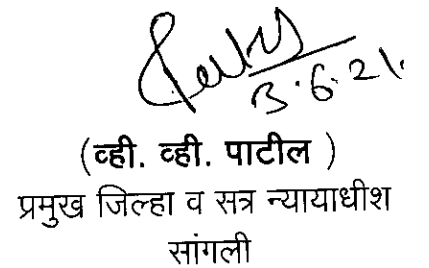 3.6.21.
(व्ही. व्ही. पाटील )
प्रमुख जिल्हा व सत्र न्यायाधीश
सांगली